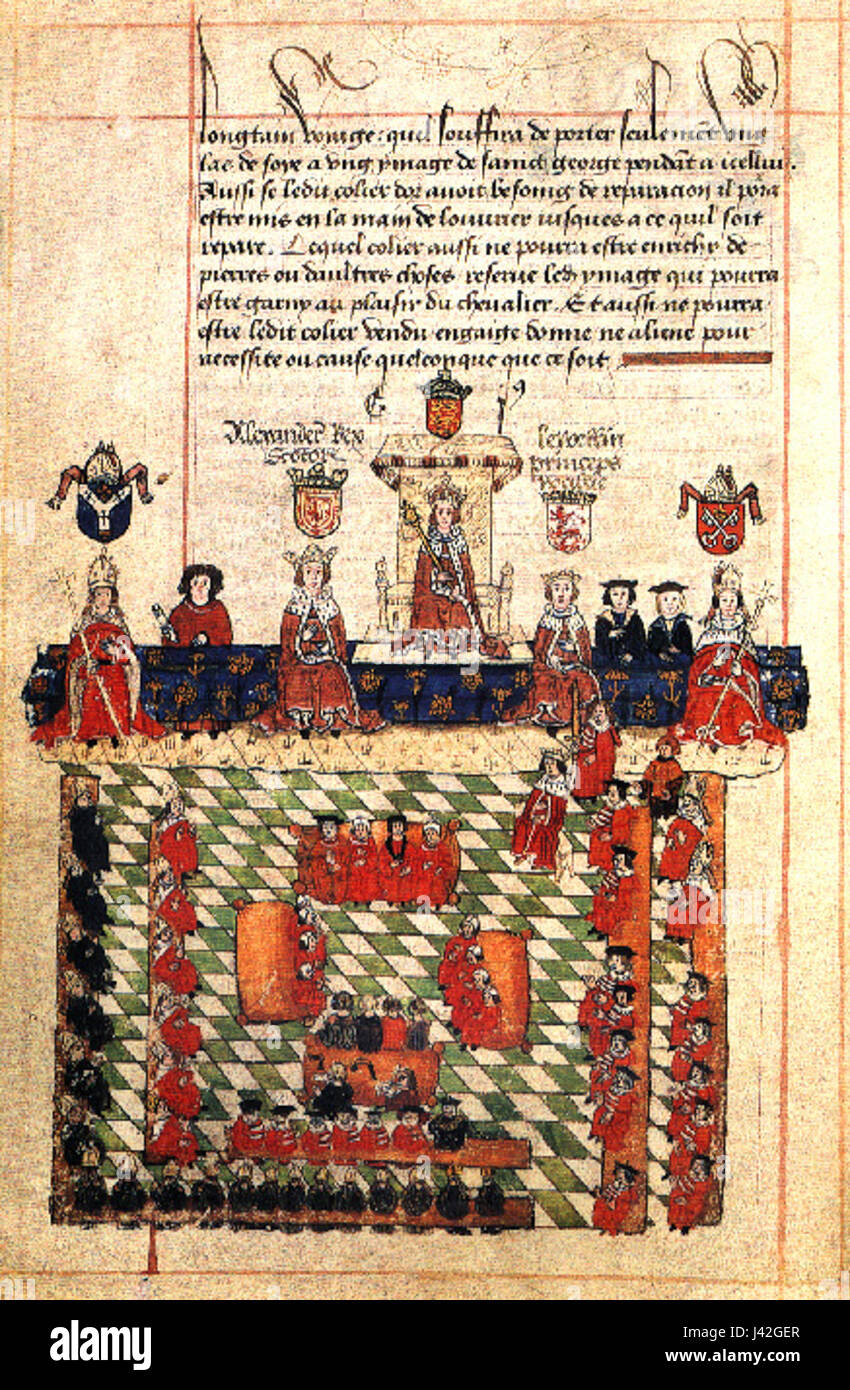 longtain voiage : quil souffira de porter seulement ung
las de soye a ung ymage de sainct george pendant a icellui.
Aussi se ledit colier dor avoit besoing de reparacion il pora
estre mis en la main de louvrier iusques a ce quil soit
repare. Lequel colier aussi ne pourra estre enrichy de
pierres ou daultres choses reserve led ymage qui pourra
estre garny au plaisir du chevalier. Et aussi ne pourra
estre ledit colier vendu engaige donne ne aliene pour
necessite ou cause quelconque que ce soit
Alexander Rex
Scotor
princeps
alamy
Image ID: J42GER
www.alamy.com